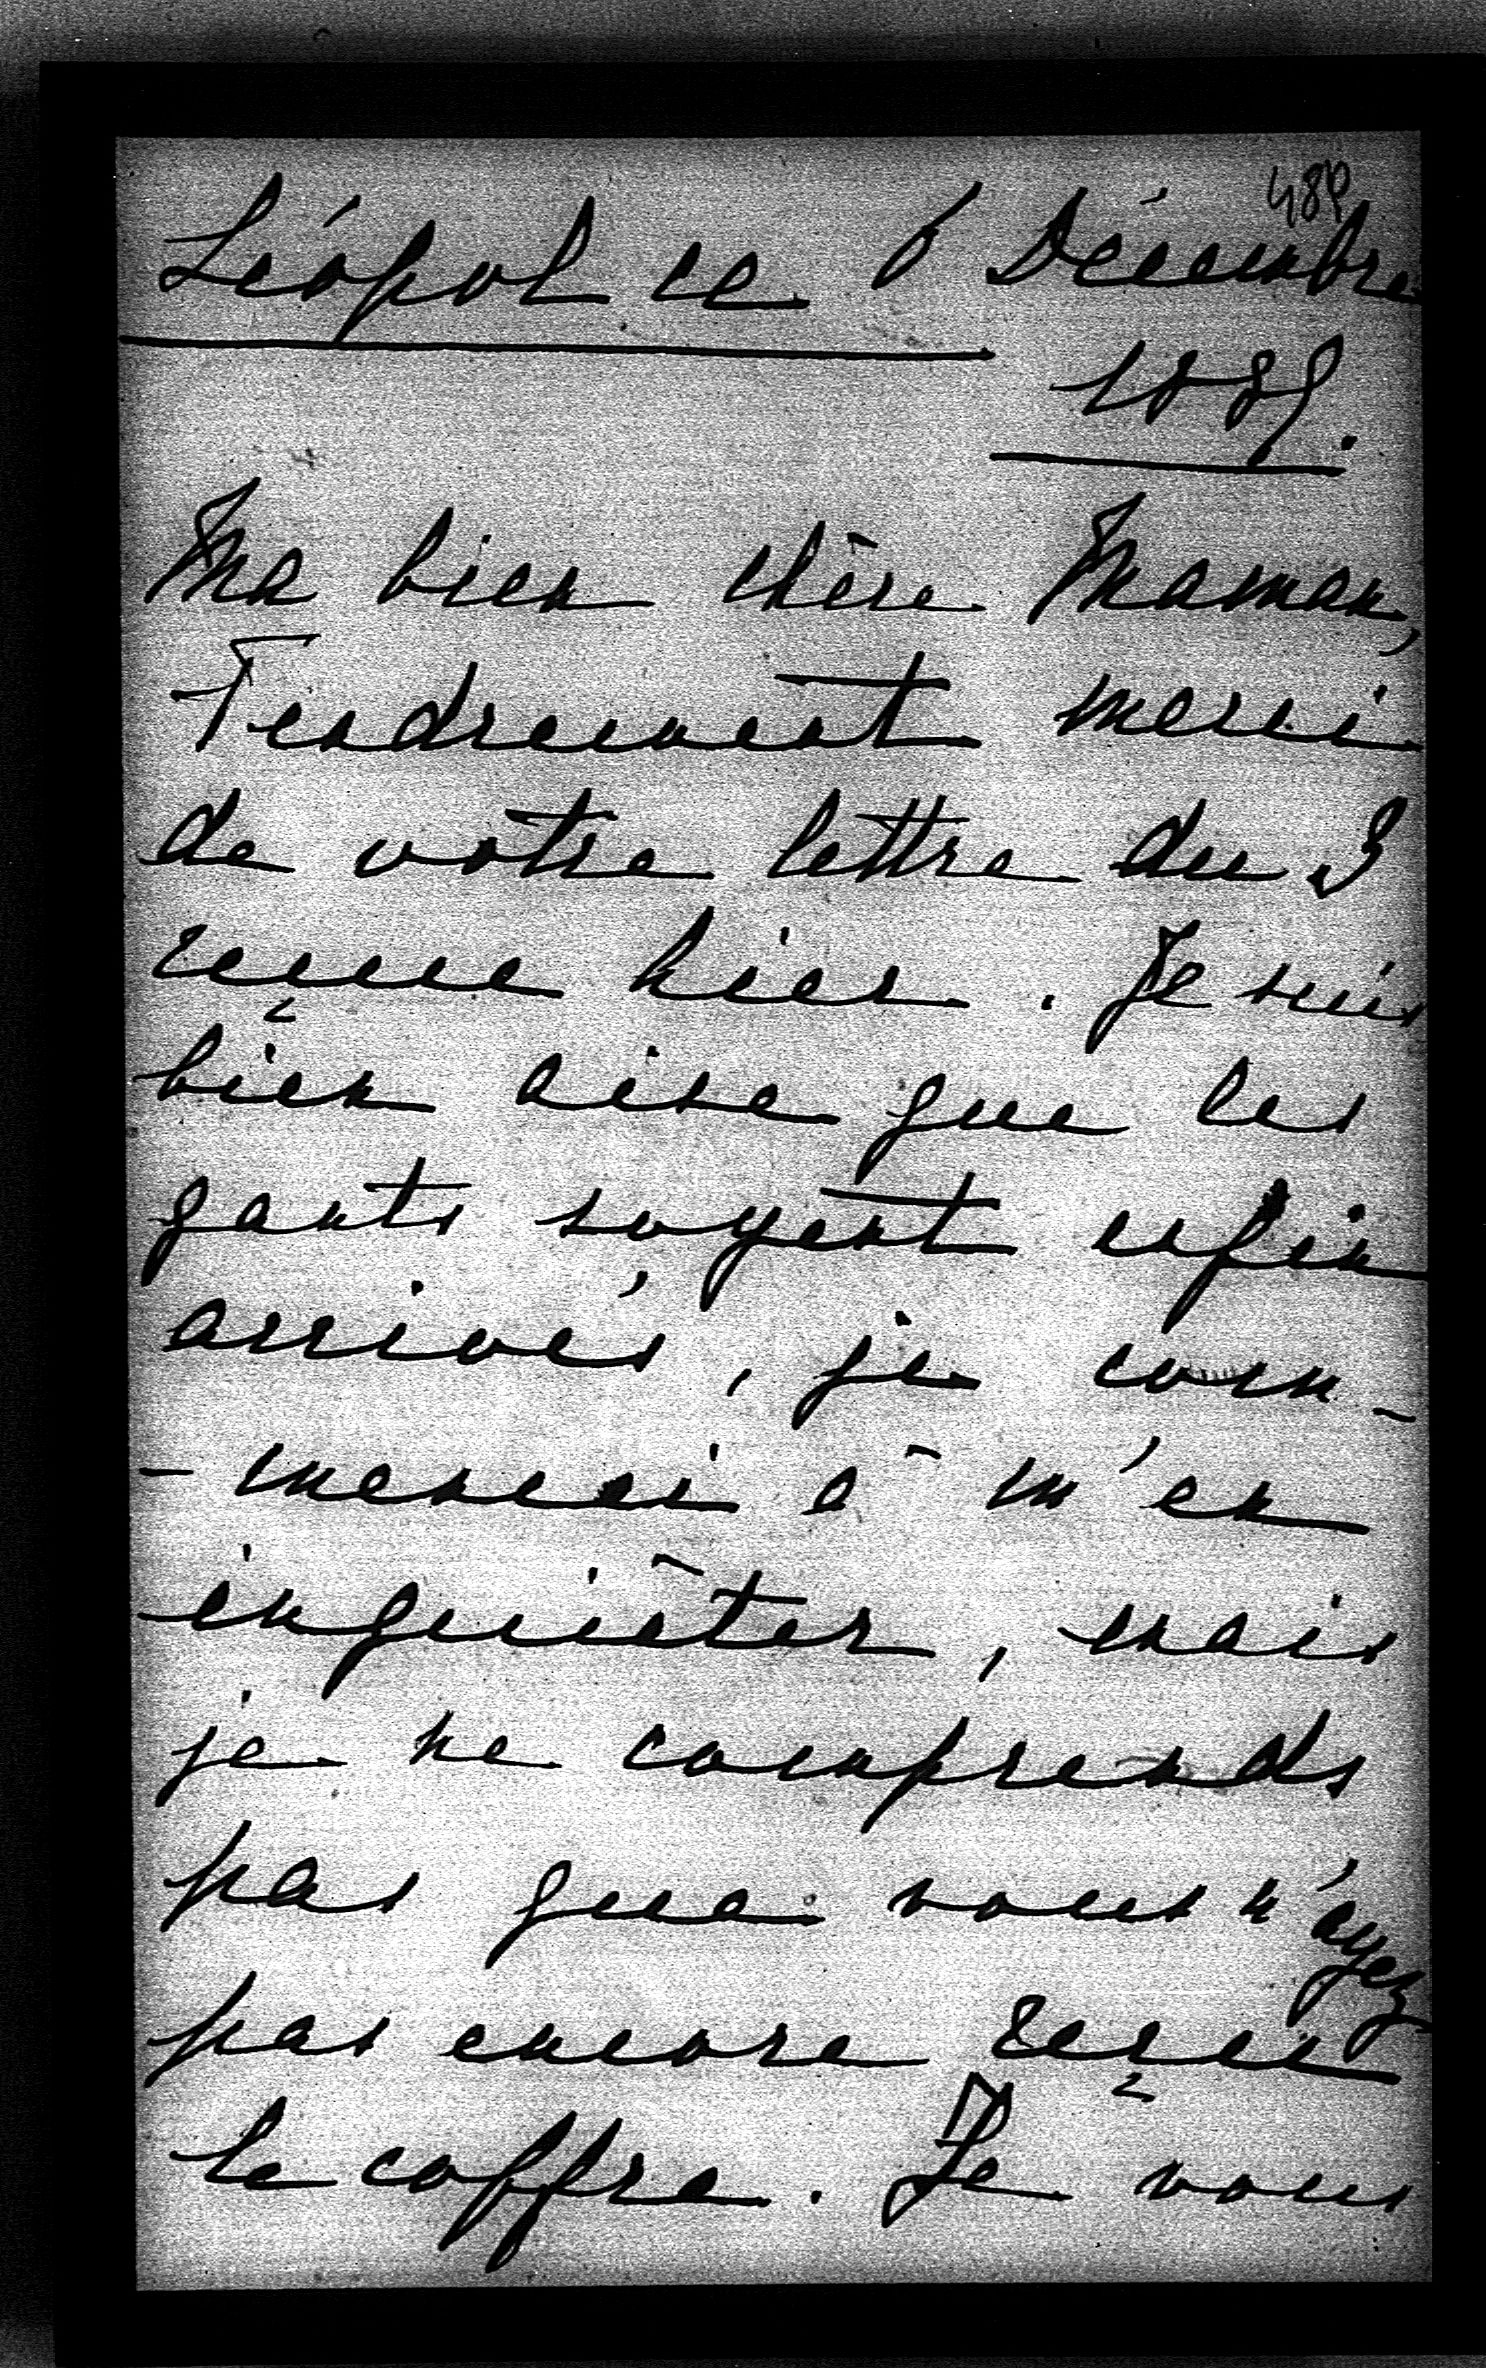 489
Léopol ce 6 Décembre
1889.
Ma bien chère Maman,
Tendrement merci
de votre lettre du 3
reçue hier. Je suis
bien aise que les
gants soyent enfin
arrivés, je com-
-mencai à m'en
inquièter, mais
je ne comprends
pas que vous n'ayez
pas encore reçu
le coffre. Je vous